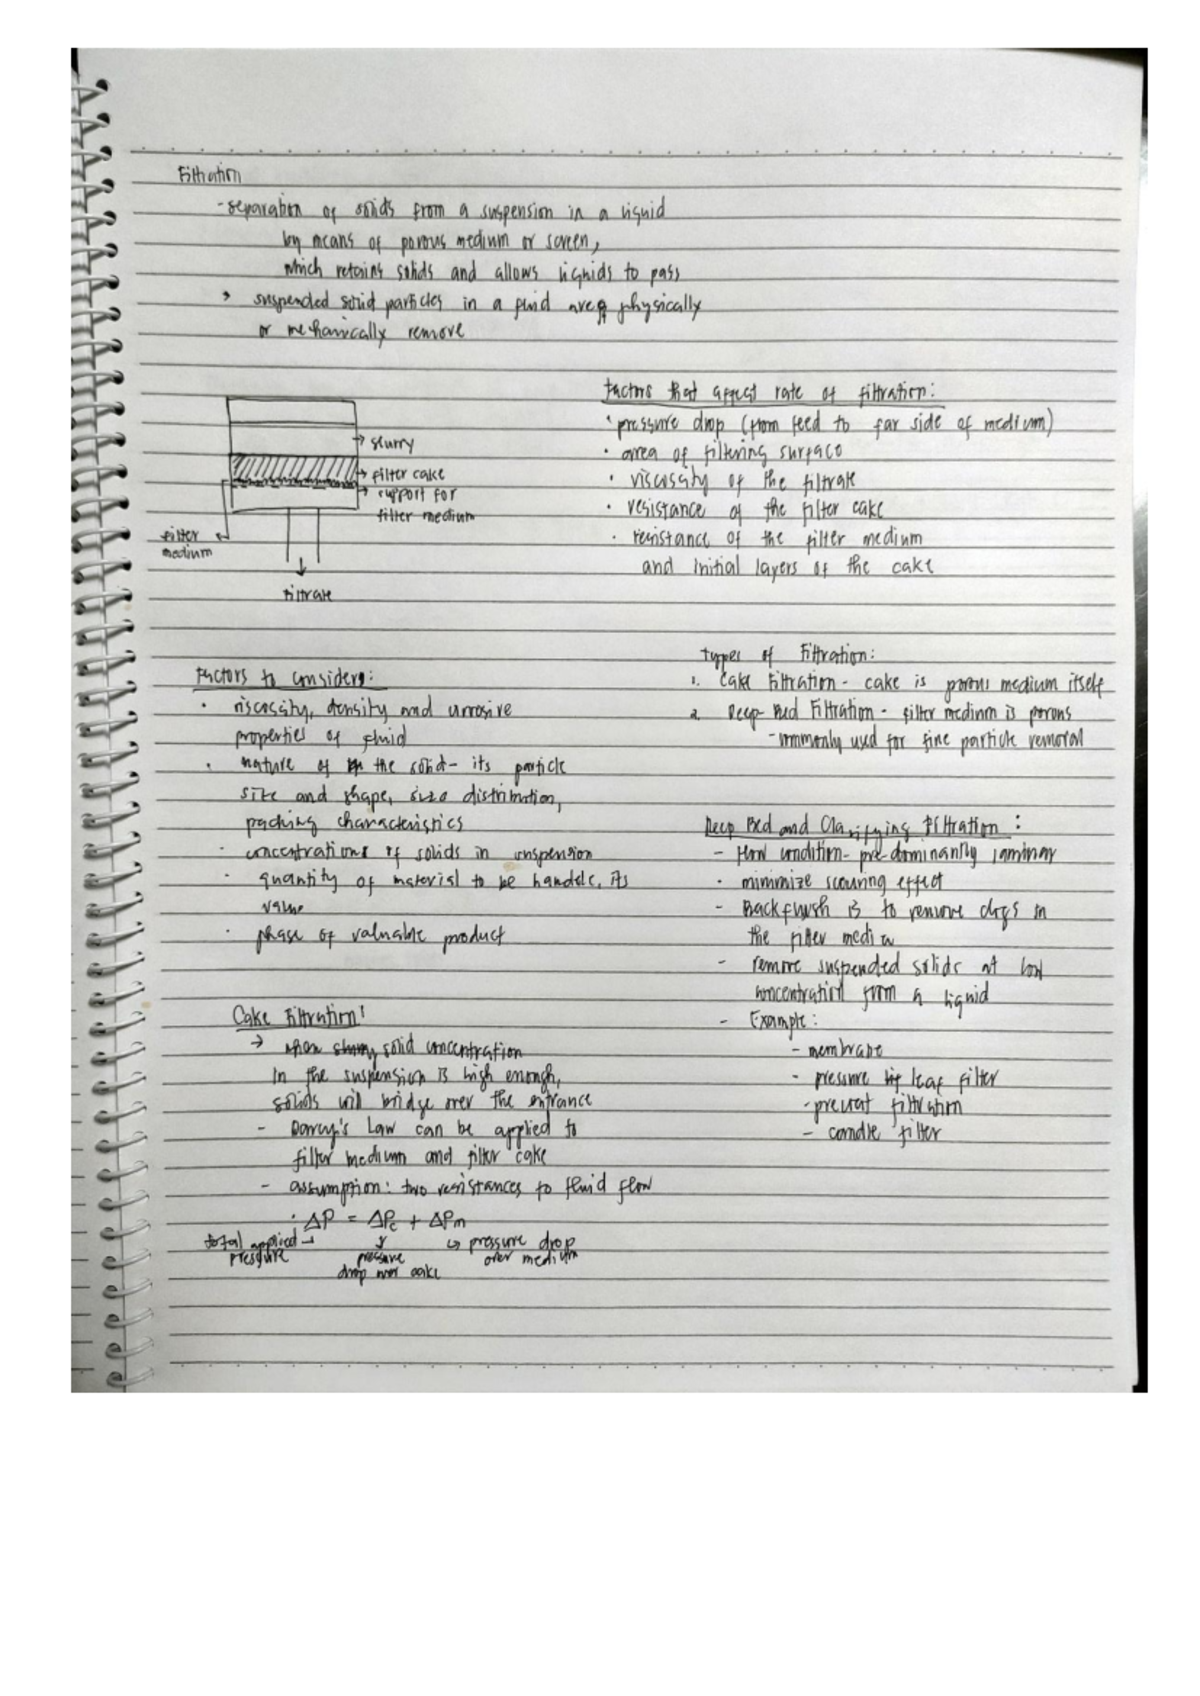 Filtration
- separation of solids from a suspension in a liquid
by means of porous medium or screen,
which retains solids and allows liquids to pass
> suspended solid particles in a fluid are physically
or mechanically remove
→ slurry
→ filter cake
→ support for
filter medium
filter
medium
filtrate
Factors that affect rate of filtration:
· pressure drop (from feed to far side of medium)
· area of filtering surface
· viscosity of the filtrate
· resistance of the filter cake
· resistance of the filter medium
and initial layers of the cake
Factors to consider:
· viscosity, density and corrosive
properties of fluid
· nature of the solid - its particle
size and shape, size distribution,
packing characteristics
· concentrations of solids in suspension
· quantity of material to be handle, its
value
· phase of valuable product
Types of Filtration:
1. Cake Filtration - cake is porous medium itself
2. Deep-Bed Filtration - filter medium is porous
- commonly used for fine particle removal
Deep Bed and Clarifying Filtration:
- Flow condition - pre-dominantly laminar
· minimize scouring effect
- Backflush is to remove clogs in
the filter media
- remove suspended solids at low
concentration from a liquid
- Example:
- membrane
- pressure leaf filter
- precoat filtration
- candle filter
Cake Filtration:
→ when slurry solid concentration
in the suspension is high enough,
solids will bridge over the entrance
- Darcy's Law can be applied to
filter medium and filter cake
- assumption: two resistances to fluid flow
· ΔP = ΔPc + ΔPm
total applied
pressure
pressure
drop over cake
↳ pressure drop
over medium